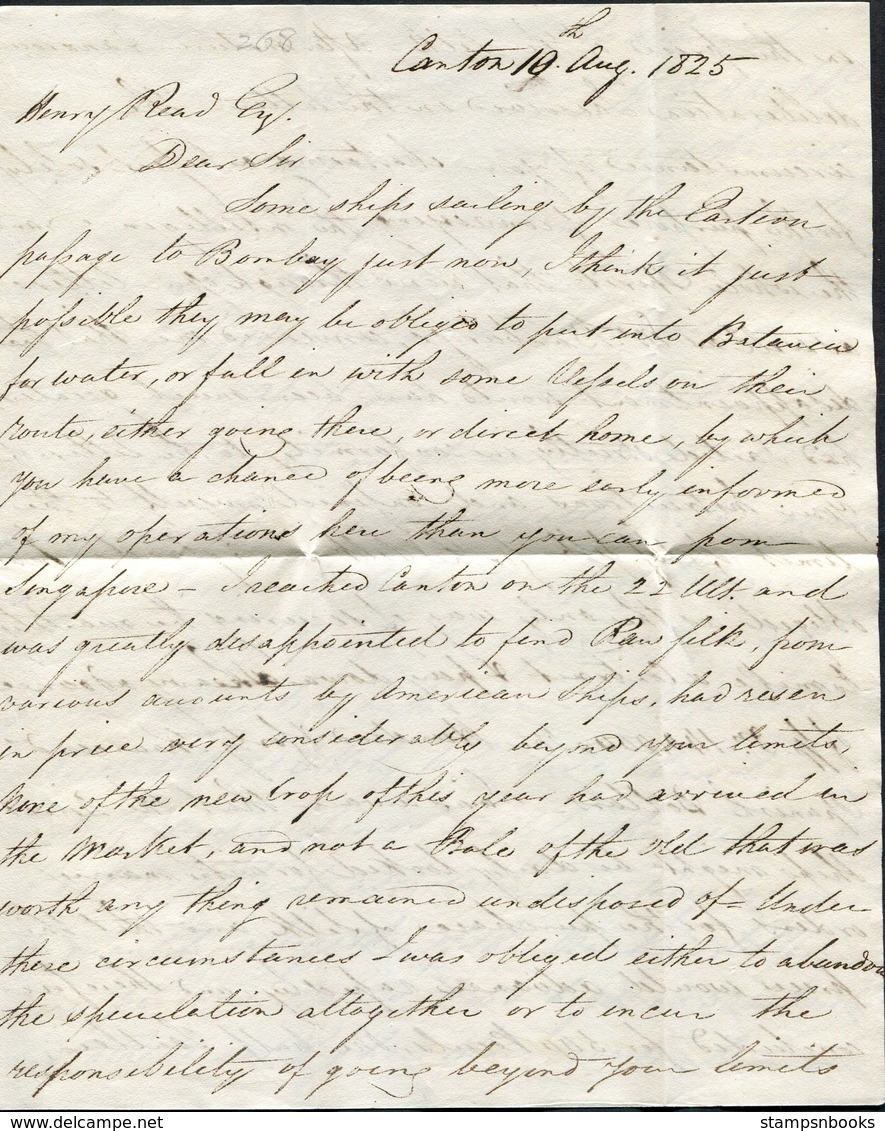 268
Canton 10th Aug. 1825
Henry Read Esq.
Dear Sir
Some ships sailing by the Eastern
passage to Bombay just now, I think it just
possible they may be obliged to put into Batavia
for water, or fall in with some Vessels on their
route, either going there, or direct home, by which
you have a chance of being more early informed
of my operations here than you can from
Singapore – I reached Canton on the 22 Ult. and
was greatly disappointed to find Raw Silk, from
various accounts by American Ships, had risen
in price very considerably beyond your limits,
None of the new Crop of this year had arrived in
the Market, and not a Bale of the old that was
worth any thing remained undisposed of – Under
these circumstances I was obliged either to abandon
the speculation altogether or to incur the
responsibility of going beyond your limits
stampsnbooks